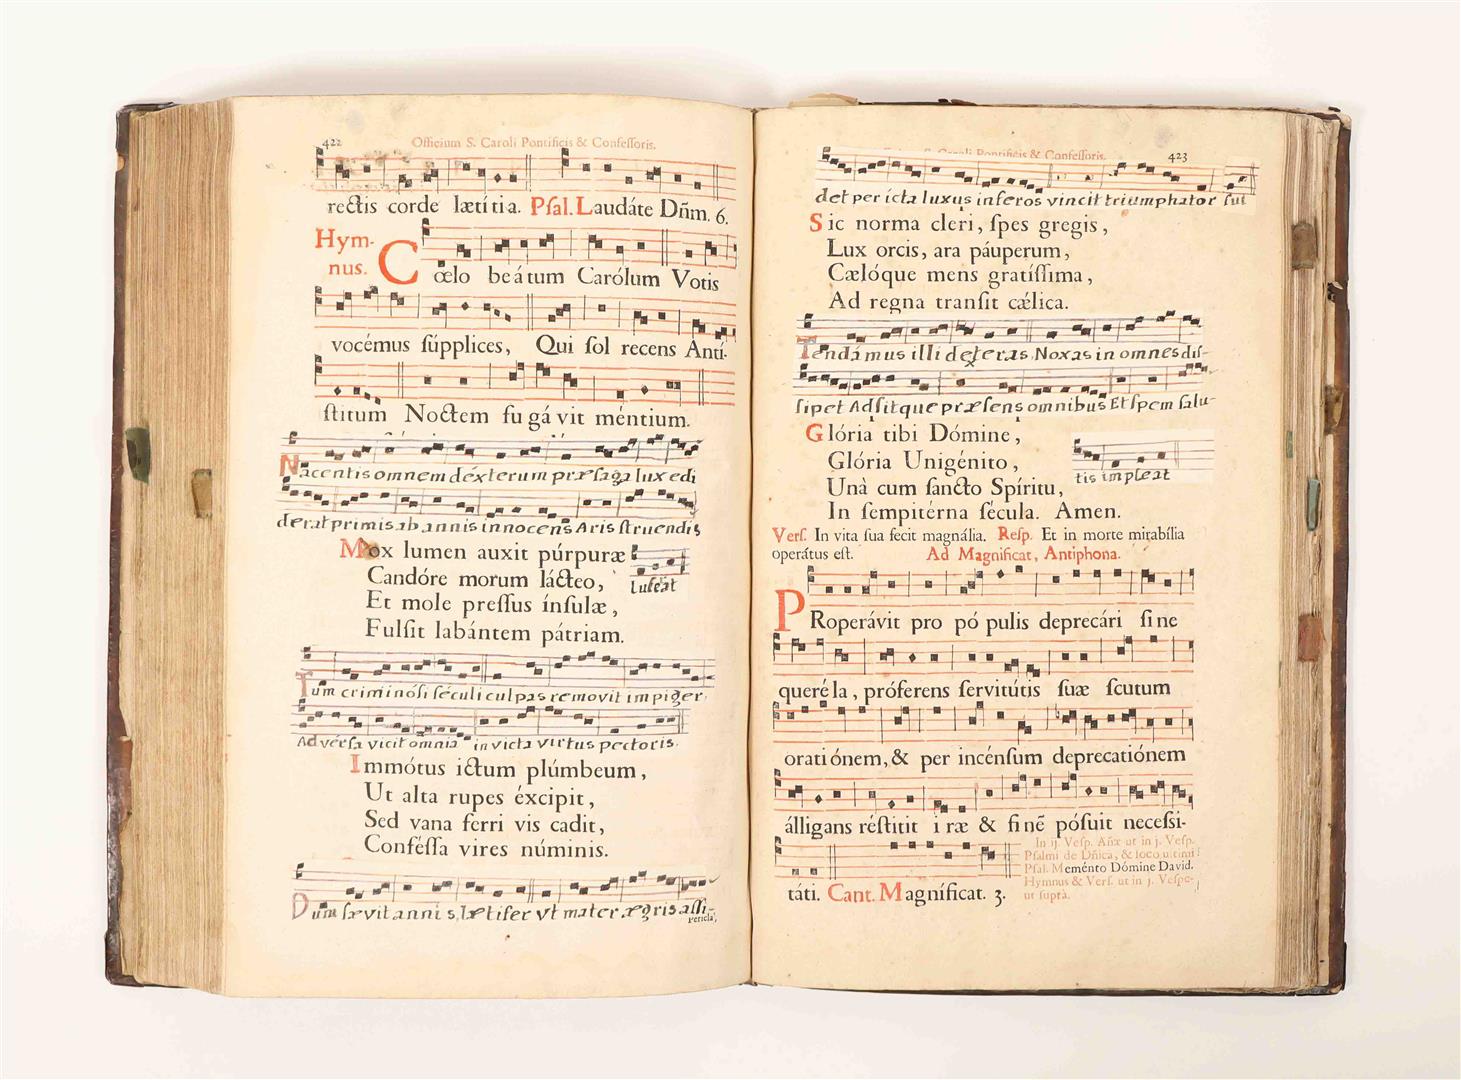 422 Officium S. Caroli Pontificis & Confeſſoris.
rectis corde lætítia. Pſal. Laudáte Dñm. 6.
Hym-
nus.
Cœlo beátum Carólum Votis
vocémus ſúpplices, Qui ſol recens Antí-
ſtitum Noctem fugávit méntium.
Nacentis omnem déxterum præſaga lux edi
derat primis ab annis innocens Aris ſtruendis
Mox lumen auxit púrpuræ
luſeat
Candóre morum lácteo,
Et mole preſſus ínſulæ,
Fulſit labántem pátriam.
Tum criminóſi ſéculi culpas removit impiger,
Advérſa vicit omnia invicta virtus pectoris.
Immótus ictum plúmbeum,
Ut alta rupes éxcipit,
Sed vana ferri vis cadit,
Conféſſa vires núminis.
Dum ſævit annis, lætifer vt mater ægris aſſi-
Pericla,
S. Caroli Pontificis & Confeſſoris. 423
det per icta luxus inferos vincit triumphator ſui
Sic norma cleri, ſpes gregis,
Lux orcis, ara páuperum,
Cælóque mens gratíſſima,
Ad regna tranſit cǽlica.
Tendámus illi dexteras, Noxas in omnes diſ-
ſipet Adſitque præſens omnibus Et ſpem ſalu-
Glória tibi Dómine,
Glória Unigénito,
tis impleat
Unà cum ſancto Spíritu,
In ſempitérna ſécula. Amen.
Verſ. In vita ſua fecit magnália. Reſp. Et in morte mirabília
operátus eſt. Ad Magnificat, Antiphona.
PRoperávit pro pópulis deprecári ſine
queréla, próferens ſervitútis ſuæ ſcutum
oratiónem, & per incénſum deprecatiónem
álligans réſtitit iræ & finẽ póſuit neceſſi-
táti. Cant. Magníficat. 3.
In ij. Veſp. Añæ ut in j. Veſp.
Pſalmi de Dñica, & loco ultimi
Pſal. Meménto Dómine David.
Hymnus & Verſ. ut in j. Veſpe-
ut ſupra.